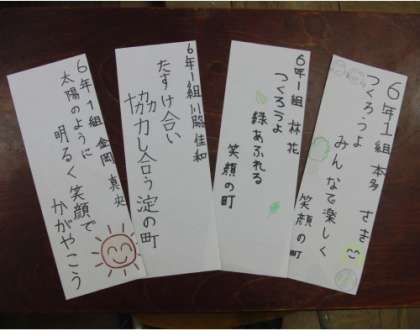 6年1組 本多 さき
つくろうよ
みんなで楽しく
笑顔の町
6年1組 林 花
つくろうよ
緑あふれる
笑顔の町
6年1組 川脇 佳和
たすけ合い
協力し合う 淀の町
6年1組 金岡 真央
太陽のように
明るく笑顔で
かがやこう